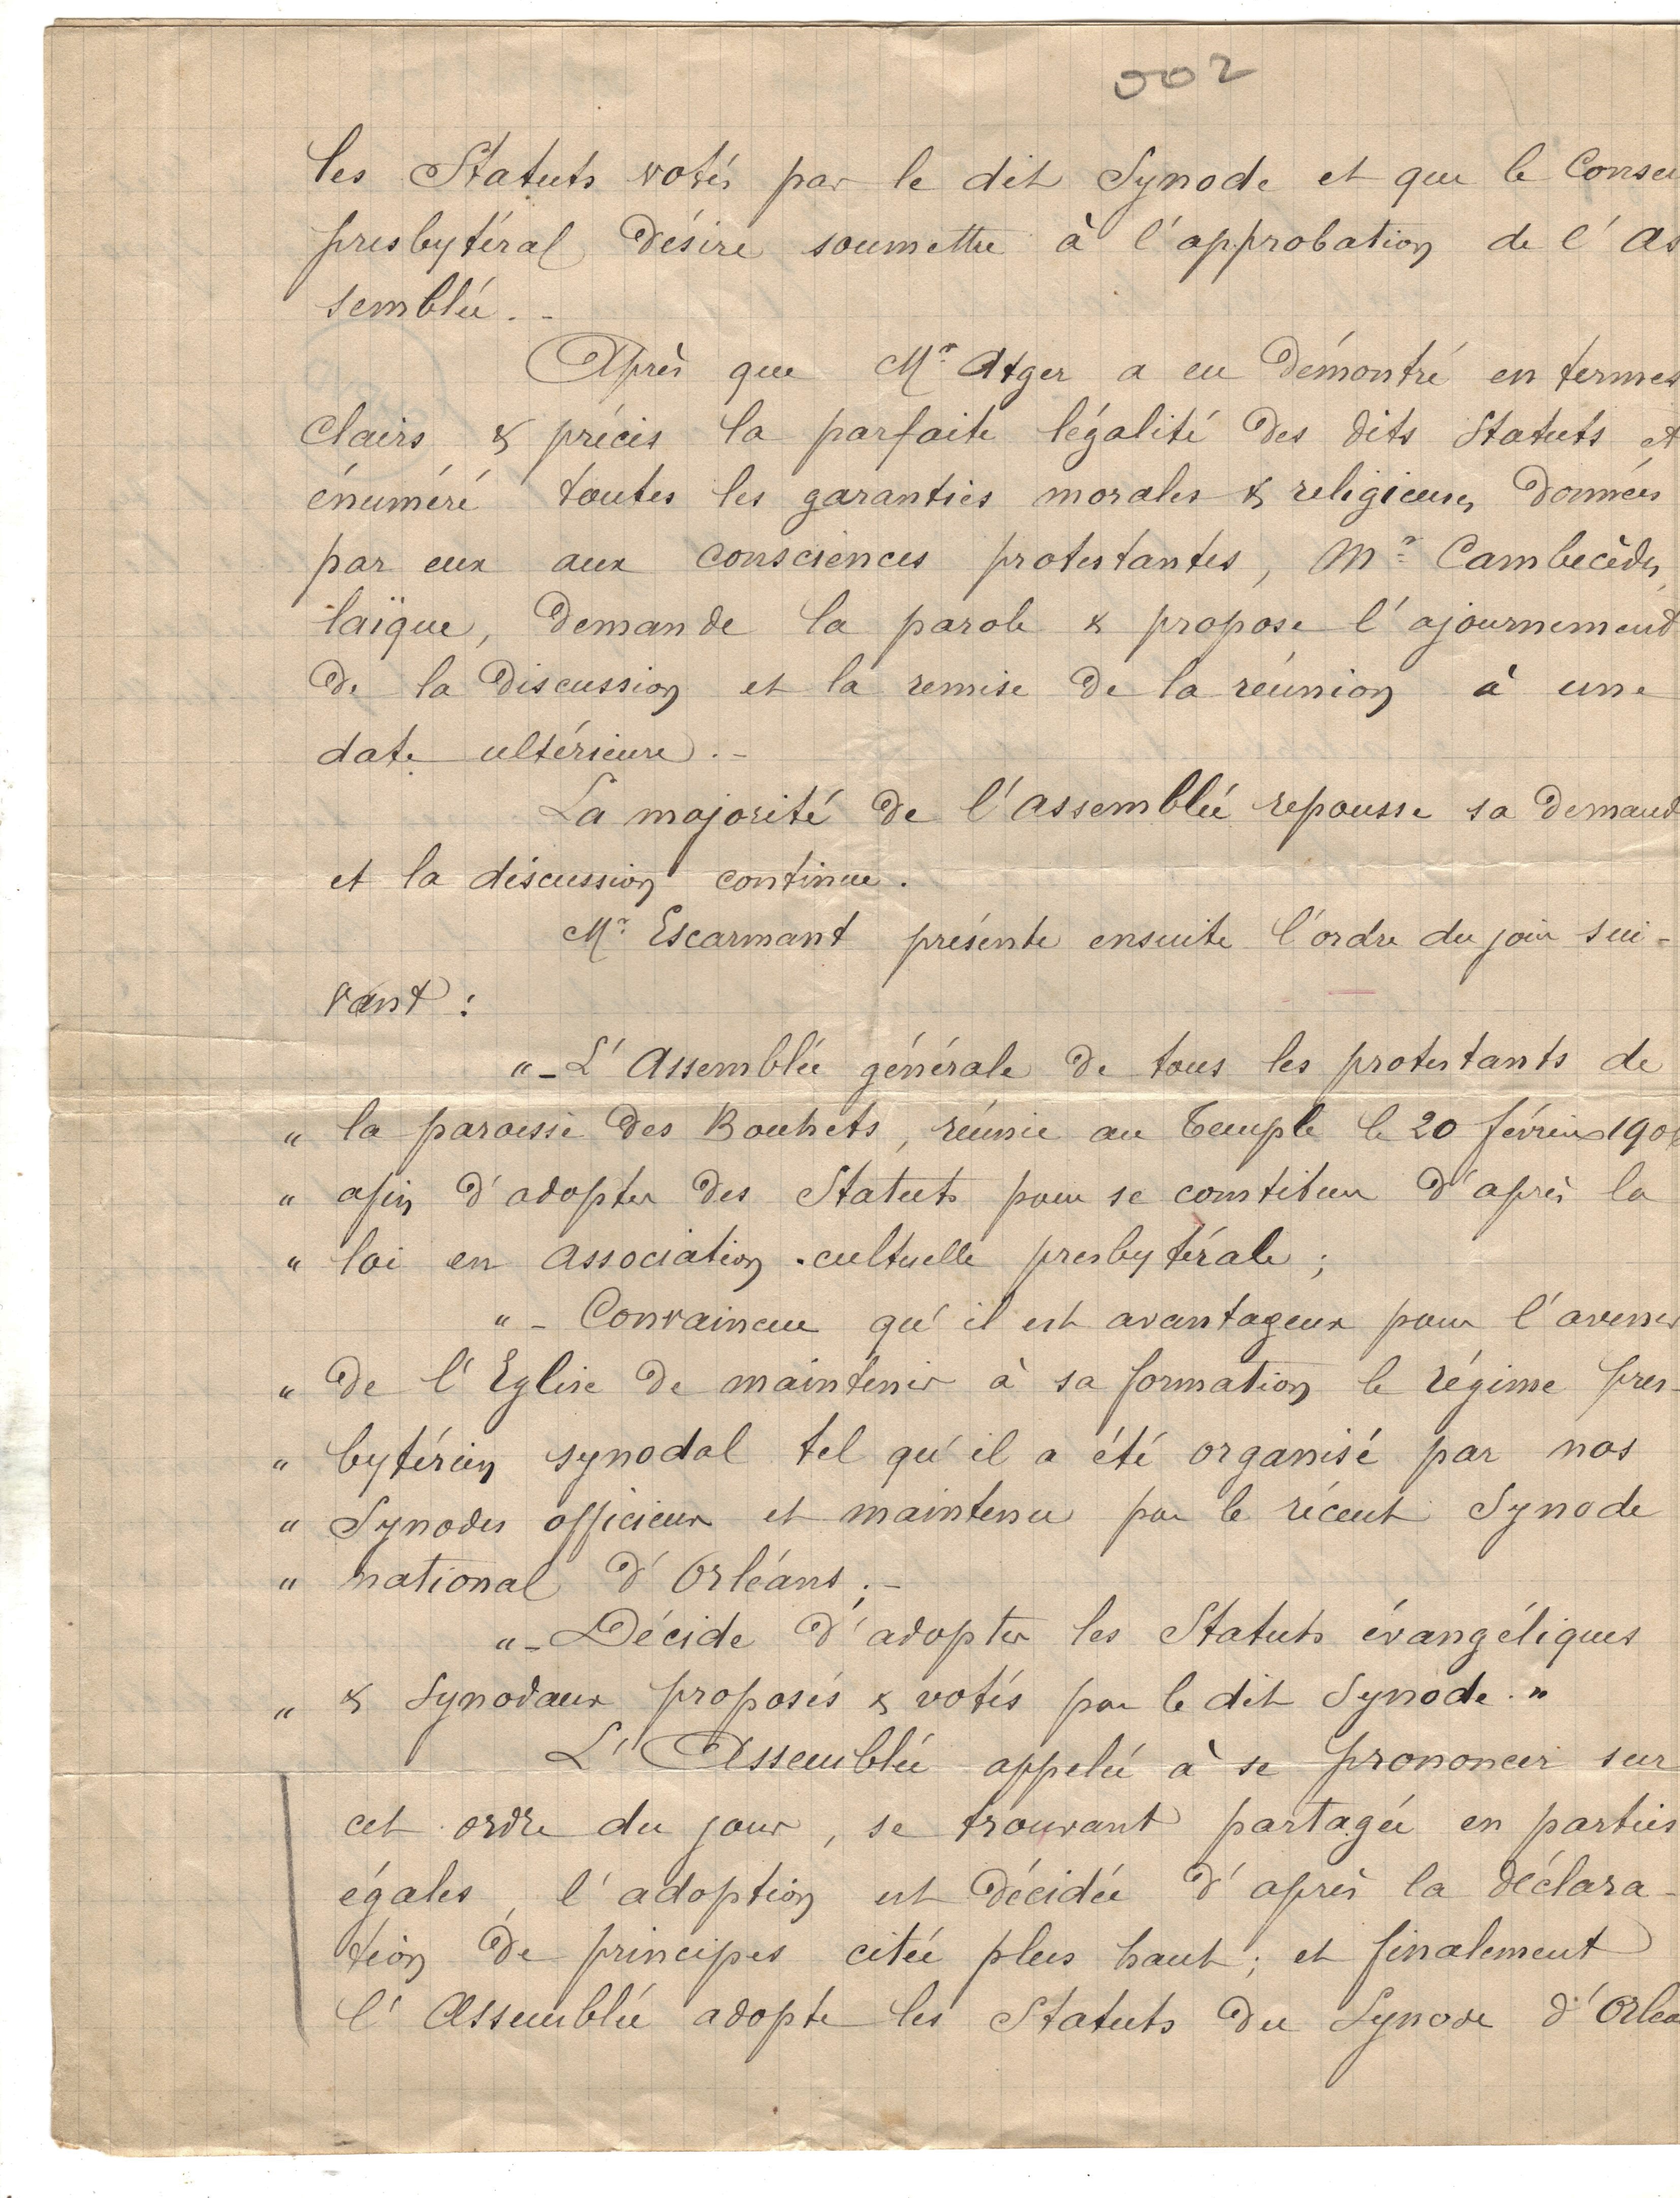 002
les Statuts votés par le dit Synode et que le Consei
presbytéral désire soumettre à l'approbation de l'As
semblée.-
Après que Mr Atger a eu démontré en termes
clairs & précis la parfaite légalité des dits Statuts et
énuméré toutes les garanties morales & religieuses données
par eux aux consciences protestantes, Mr Cambecèdes,
laïque, demande la parole & propose l'ajournement
de la discussion et la remise de la réunion à une
date ultérieure.-
La majorité de l'assemblée repousse sa demand
et la discussion continue.
Mr Escarmant présente ensuite l'ordre du jour sui-
vant :
"- L'Assemblée générale de tous les protestants de
" la paroisse des Bouhets, réunie au Temple le 20 février 190
" afin d'adopter des Statuts pour se constituer d'après la
" loi en association cultuelle presbytérale ;
"- Convaincue qu'il est avantageux pour l'avenir
" de l'Eglise de maintenir à sa formation le régime pres-
" bytérien synodal tel qu'il a été organisé par nos
" Synodes officieux et maintenu par le récent Synode
" national d'Orléans ;-
"- Décide d'adopter les Statuts évangéliques
" & Synodaux proposés & votés par le dit Synode. "
L'Assemblée appelée à se prononcer sur
cet ordre du jour, se trouvant partagée en parties
égales, l'adoption est décidée d'après la déclara-
tion de principes citée plus haut ; et finalement
l'Assemblée adopte les Statuts du Synode d'Orléa